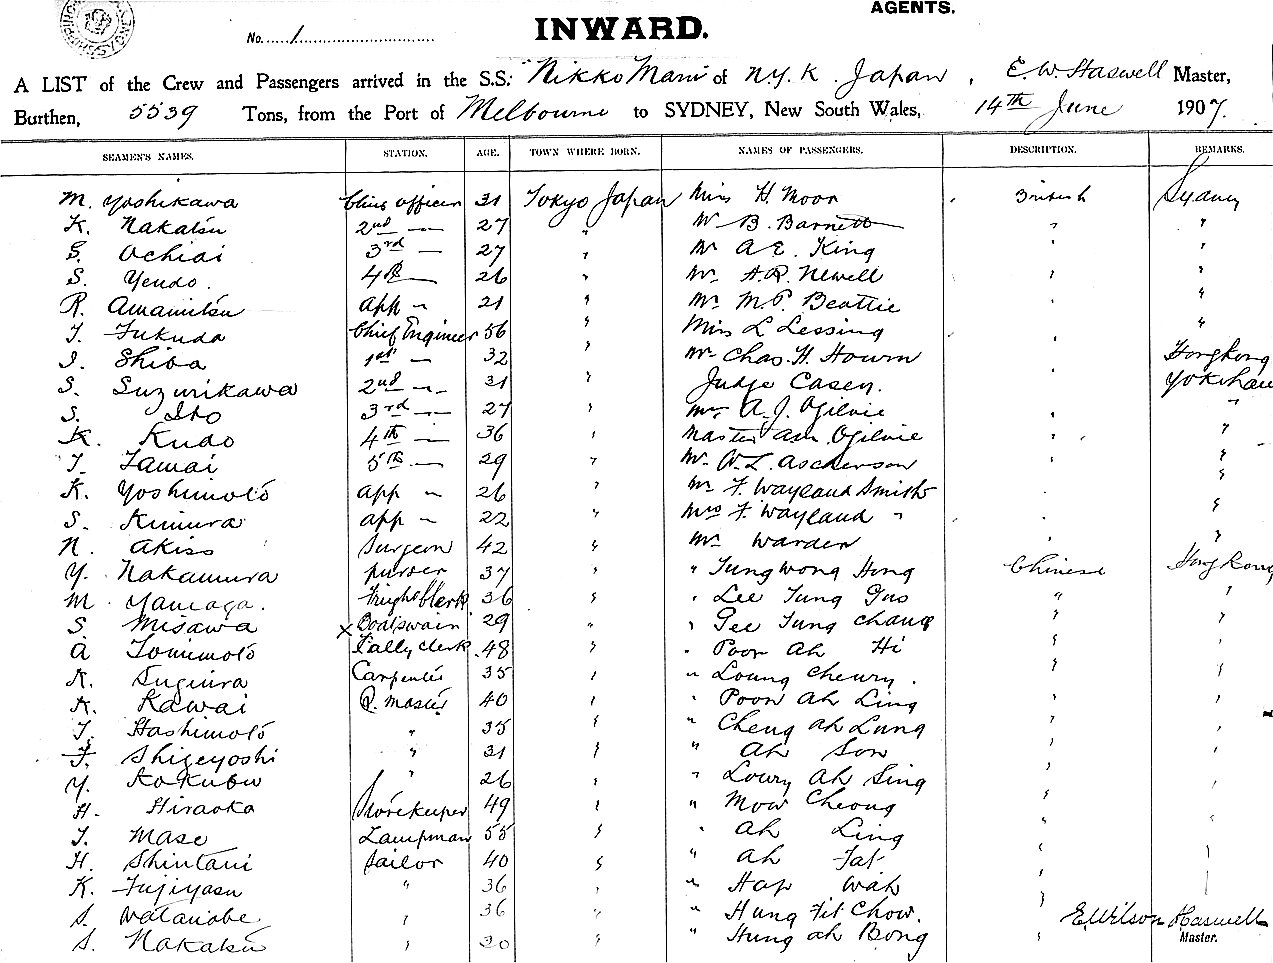 AGENTS.
No. 1
INWARD.
A LIST of the Crew and Passengers arrived in the S.S. Nikko Maru of N.Y.K. Japan, E.W. Haswell Master,
Burthen, 5539 Tons, from the Port of Melbourne to SYDNEY, New South Wales, 14th June 1907.
SEAMEN'S NAMES. STATION. AGE. TOWN WHERE BORN. NAMES OF PASSENGERS. DESCRIPTION. REMARKS.
M. Yoshikawa Chief officer 31 Tokyo Japan Miss H. Moor British Sydney
K. Nakatsu 2nd — 27 " Mr B. Barnett " "
S. Ochiai 3rd — 27 " Mr A E. King " "
S. Yendo. 4th — 26 " Mr. A.R. Newell " "
R. Amamitsu app " 21 " Mr M.P. Beattie " "
T. Fukuda Chief Engineer 56 " Miss L Lessing " "
I. Shiba 1st — 32 " Mr Chas. H. Hourn " Hongkong
S. Suzurikawa 2nd — 31 " Judge Casey. " Yokohama
S. Ito 3rd — 27 " A. J. Ogilvie " "
K. Kudo 4th — 36 " Master Ogilvie " "
T. Tamai 5th — 29 " Mr. W. L. Ascherson "
K. Yoshimoto app " 26 " Mr F. Wayland Smith "
S. Kimura app " 22 " Mrs F. Wayland " " "
N. Akiso Surgeon 42 " Mr Warden " "
Y. Nakamura purser 37 " " Tung Wong Hong Chinese Hong Kong
M Yamaga. Freight Clerk 36 " " Lee Tung Guo " "
S. Misawa x Boatswain 29 " " Gee Tung Chang " "
A Tomimoto Tally Clerk 48 " " Poon Ah Hi " "
K. Sugiura Carpenter 35 " " Loung Cheury. " "
K. Kawai Q. Master 40 " " Poon Ah Ling " "
T. Hashimoto " 35 " " Cheng Ah Lung " "
T. Shigeyoshi " 31 " " Ah Son " "
Y. Kokubu " 26 " " Lowry Ah Sing " "
H. Hiraoka Storekeeper 49 " " Mow Cheong " "
T. Mase Lampman 55 " " Ah Ling " "
H. Shintani Sailor 40 " " Ah Fat " "
K. Fujiyasu " 36 " " Hap Wah " "
S. Watanabe " 36 " " Hung Fit Chow. " E. Wilson Haswell
S. Nakatsu " 30 " " Hung Ah Bong " Master.